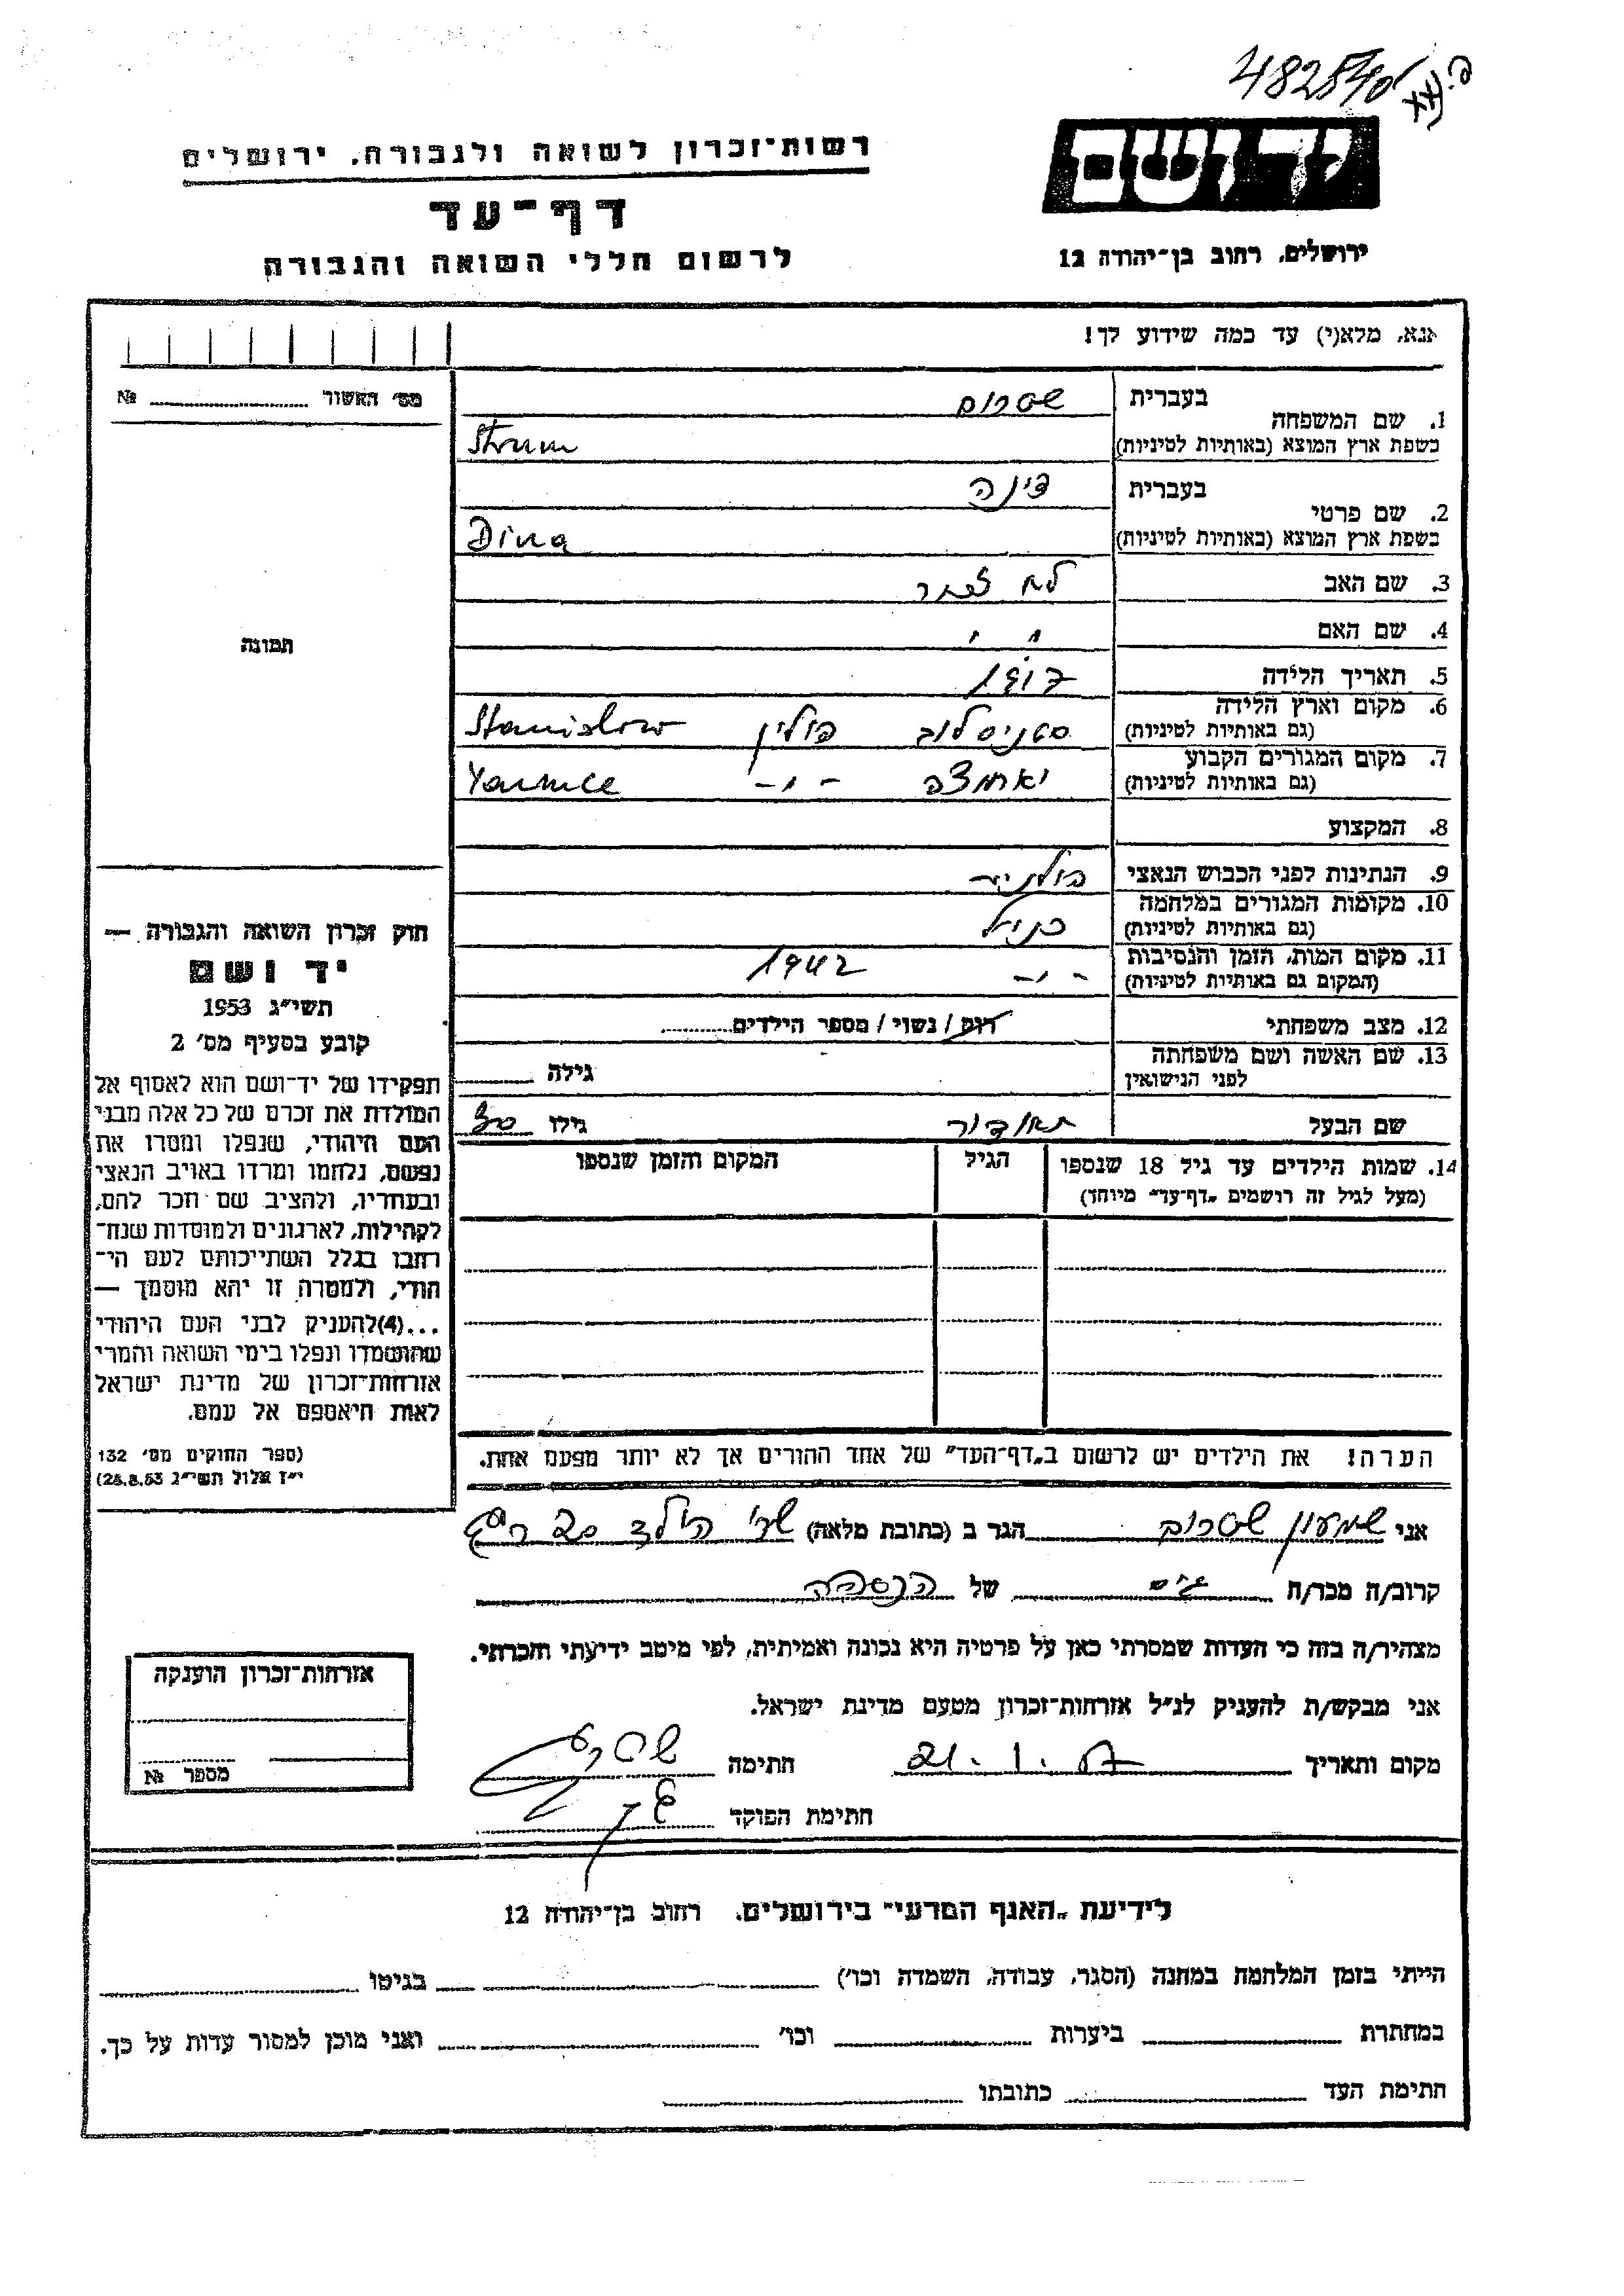 482540
יד ושם
ירושלים, רחוב בן־יהודה 12
רשות־זכרון לשואה ולגבורה, ירושלים
דף־עד
לרשום חללי השואה והגבורה
אנא, מלא(י) עד כמה שידוע לך!
מס' האשור № 
1. שם המשפחה בעברית שטרום
בשפת ארץ המוצא (באותיות לטיניות) Strum
2. שם פרטי בעברית דינה
בשפת ארץ המוצא (באותיות לטיניות) Dina
3. שם האב לא זכור
4. שם האם " "
5. תאריך הלידה
6. מקום וארץ הלידה (גם באותיות לטיניות) סטניסלוב פולין Stanislow
7. מקום המגורים הקבוע (גם באותיות לטיניות) יארמצה -"-
8. המקצוע
9. הנתינות לפני הכבוש הנאצי פולנית
10. מקומות המגורים במלחמה (גם באותיות לטיניות) כנ"ל
11. מקום המות, הזמן והנסיבות (המקום גם באותיות לטיניות) -"- 1942
12. מצב משפחתי רווק / נשוי / מספר הילדים
13. שם האשה ושם משפחתה לפני הנישואין גילה
שם הבעל תאודור גילו 30
14. שמות הילדים עד גיל 18 שנספו (מעל לגיל זה רושמים „דף־עד" מיוחד) הגיל המקום והזמן שנספו
תמונה
חוק זכרון השואה והגבורה —
יד ושם
תשי"ג 1953
קובע בסעיף מס' 2
תפקידו של יד־ושם הוא לאסוף אל
המולדת את זכרם של כל אלה מבני
העם היהודי, שנפלו ומסרו את
נפשם, נלחמו ומרדו באויב הנאצי
ובעוזריו, ולהציב שם וזכר להם,
לקהילות, לארגונים ולמוסדות שנח־
רבו בגלל השתייכותם לעם הי־
הודי, ולמטרה זו יהא מוסמך —
...(4)להעניק לבני העם היהודי
שהושמדו ונפלו בימי השואה והמרי
אזרחות־זכרון של מדינת ישראל
לאות היאספם אל עמם.
(ספר החוקים מס' 132
י"ז אלול תשי"ג 25.8.53)
הערה! את הילדים יש לרשום ב„דף־העד" של אחד ההורים אך לא יותר מפעם אחת.
אני שמעון שטרום הגר ב (כתובת מלאה)
קרוב/ה מכר/ה גיס של הנספה
מצהיר/ה בזה כי העדות שמסרתי כאן על פרטיה היא נכונה ואמיתית, לפי מיטב ידיעתי והכרתי.
אני מבקש/ת להעניק לנ"ל אזרחות־זכרון מטעם מדינת ישראל.
מקום ותאריך חתימה
חתימת הפוקד
אזרחות־זכרון הוענקה
מספר №
לידיעת „האגף המדעי" בירושלים, רחוב בן־יהודה 12
הייתי בזמן המלחמה במחנה (הסגר, עבודה, השמדה וכו') בגיטו
במחתרת ביערות וכו' ואני מוכן למסור עדות על כך.
חתימת העד כתובתו